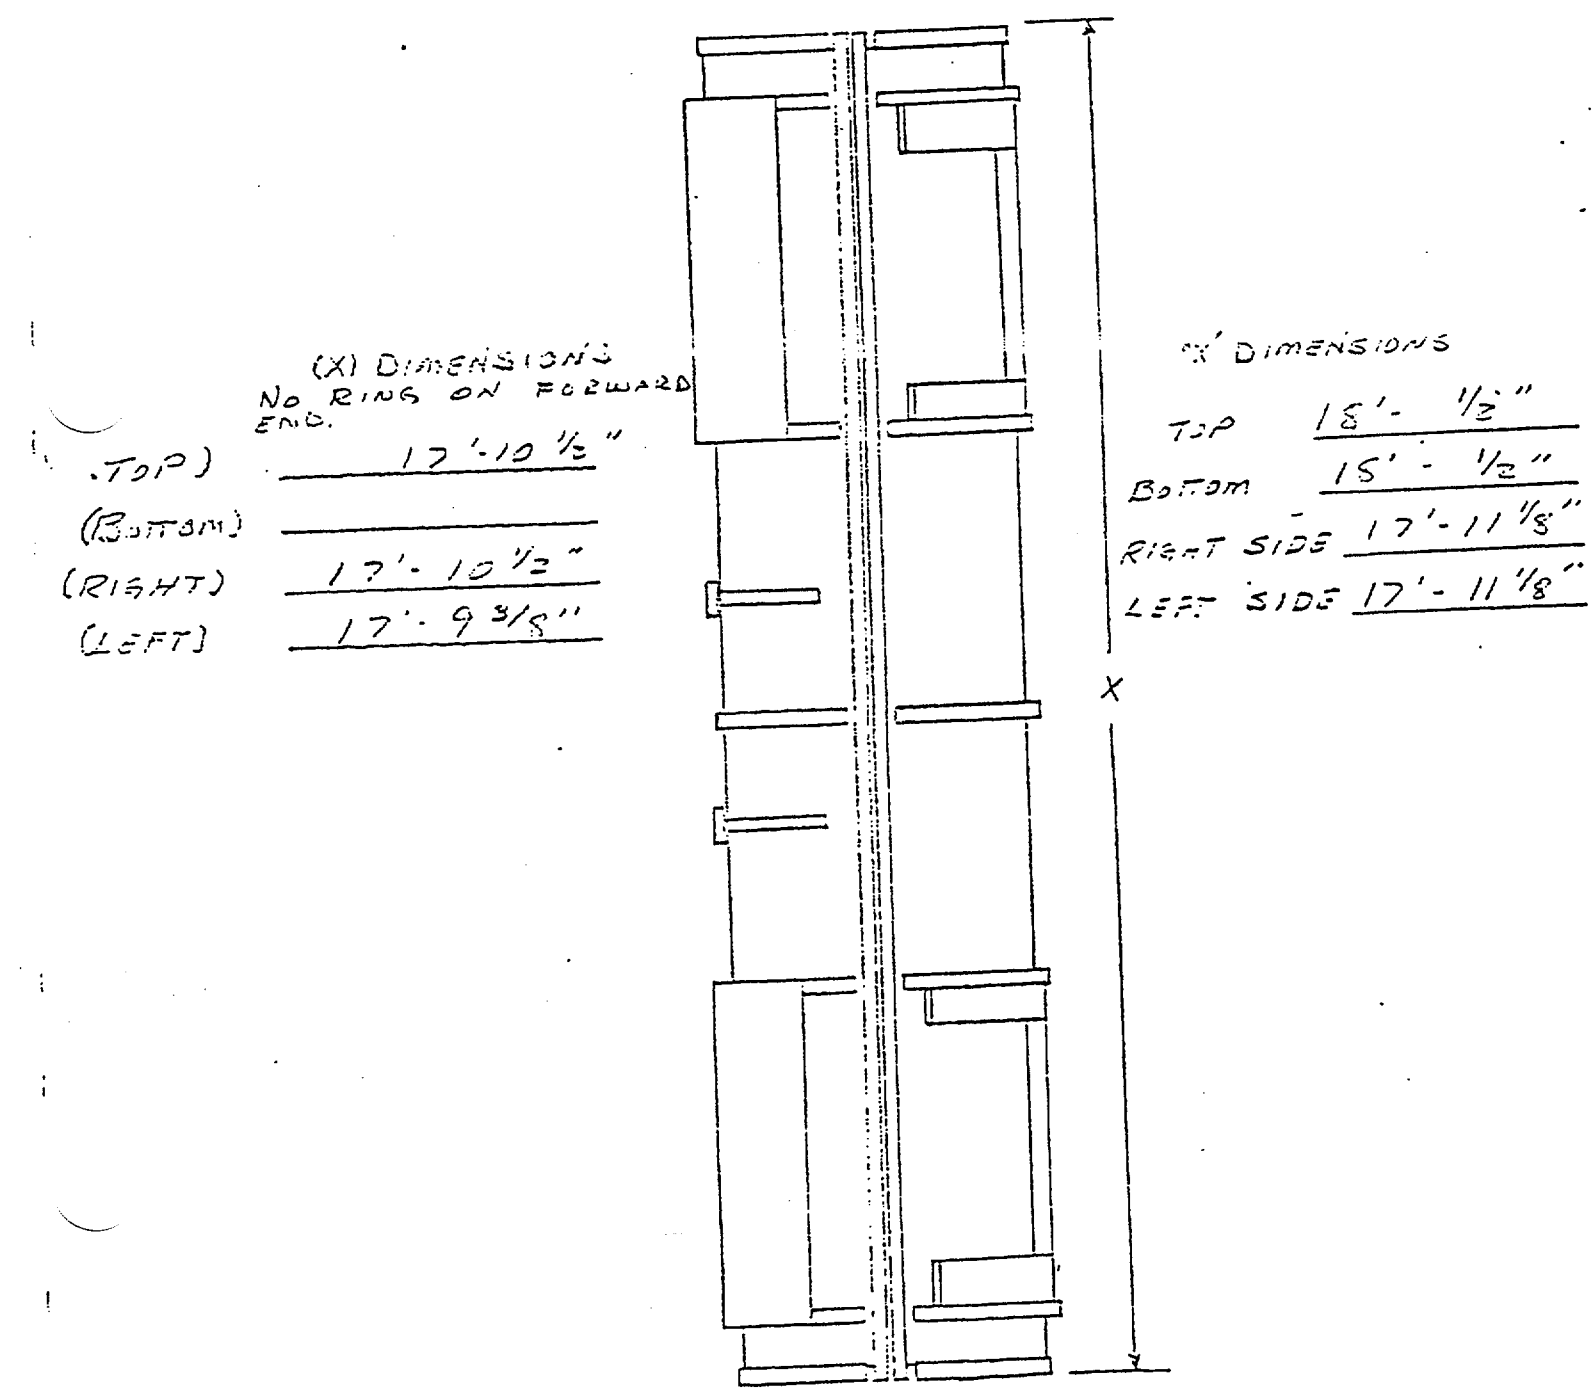 (X) DIMENSIONS
NO RING ON FORWARD
END.
(TOP) 17'-10 1/2"
(BOTTOM)
(RIGHT) 17'-10 1/2"
(LEFT) 17'-9 3/8"
"X" DIMENSIONS
TOP 18'- 1/2"
BOTTOM 18'- 1/2"
RIGHT SIDE 17'-11 1/8"
LEFT SIDE 17'-11 1/8"
X